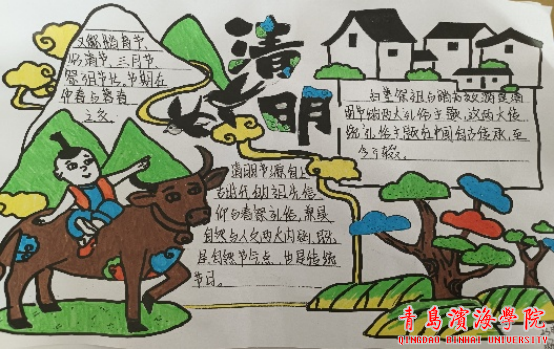 清明
又称踏青节、
行清节、三月节、
祭祖节等，节期在
仲春与暮春
之交
扫墓祭祖与踏青郊游是清
明节的两大礼俗主题，这两大传
统礼俗主题在中国自古传承，至
今不辍。
清明节源自上
古时代的祖先信
仰与春祭礼俗，兼具
自然与人文两大内涵，既
是自然节气点，也是传统
节日。
青島濱海學院
QINGDAO BINHAI UNIVERSITY